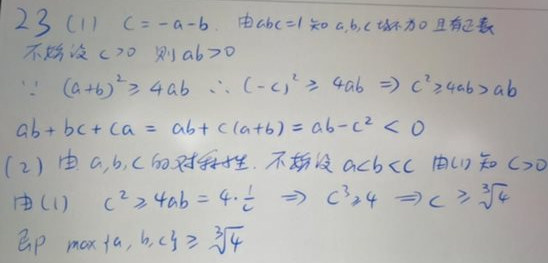 23 (1) c=-a-b. 由abc=1知a,b,c均不为0且有正数
不妨设c>0 则ab>0
∵ (a+b)²≥4ab ∴(-c)²≥4ab ⇒ c²≥4ab>ab
ab+bc+ca=ab+c(a+b)=ab-c²<0
(2) 由a,b,c的对称性.不妨设a<b<c 由(1)知c>0
由(1) c²≥4ab=4·1/c ⇒ c³≥4 ⇒ c≥∛4
即 max{a,b,c}≥∛4